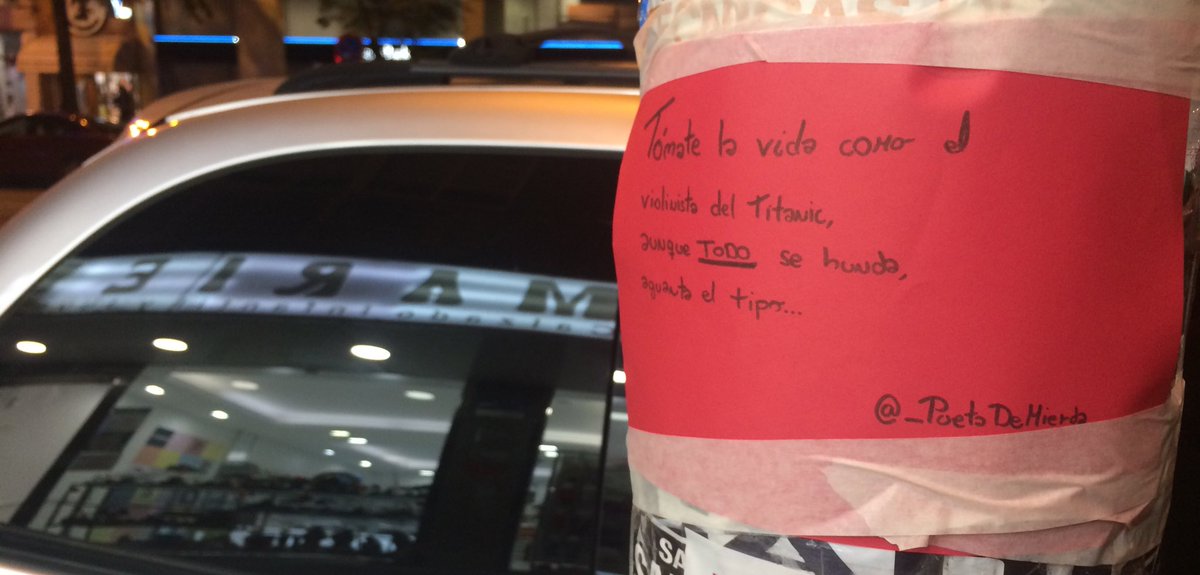 Tómate la vida como el
violinista del Titanic,
aunque TODO se hunda,
aguanta el tipo...
@_PoetaDeMierda
MARIE
SA